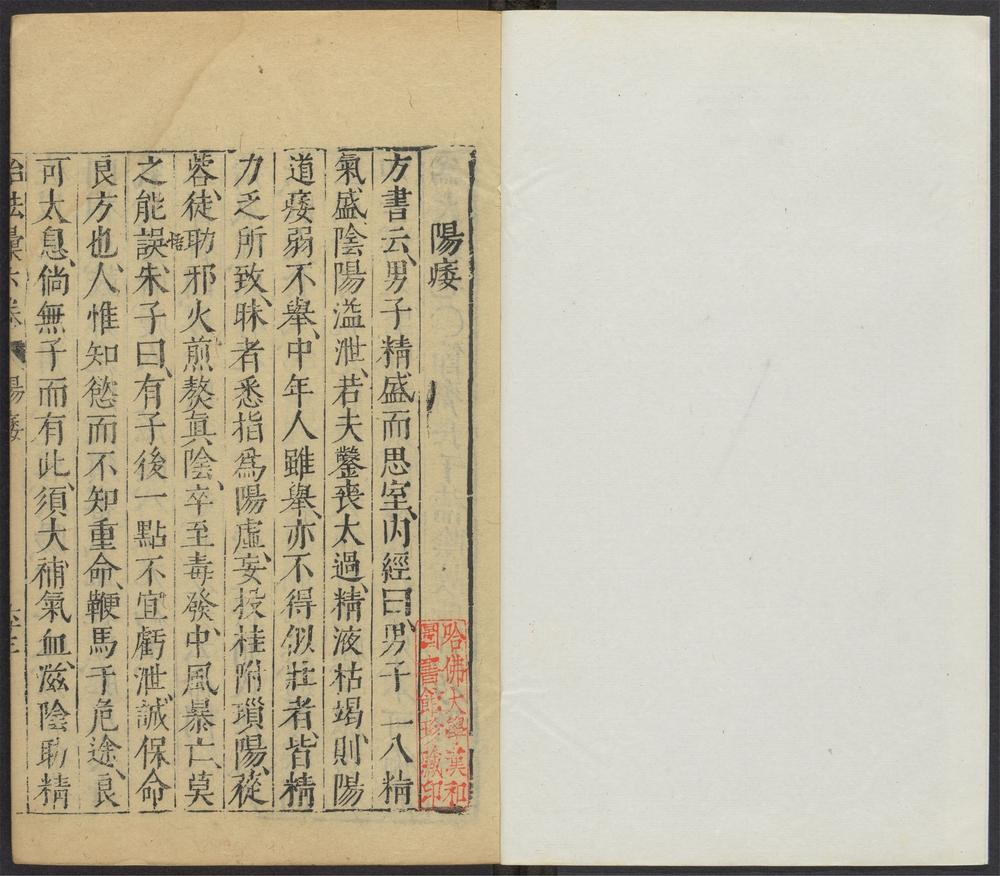 陽痿
方書云、男子精盛而思室、內經曰、男子二八精
氣盛、陰陽溢泄、若夫鑿喪太過、精液枯竭、則陽
道痿弱不舉、中年人雖舉、亦不得似壯者、皆精
力乏所致、昧者悉指爲陽虛、妄投桂附瑣陽、蓯
蓉、徒助邪火、煎熬眞陰、卒至毒發、中風暴亡、莫
之能誤、朱子曰、有子後一點不宜虧泄、誠保命
悟
良方也、人惟知慾而不知重命、鞭馬于危途、良
可太息、倘無子而有此、須大補氣血、滋陰助精
治法彙六卷 陽痿 六三
哈佛大學漢和
圖書館珍藏印